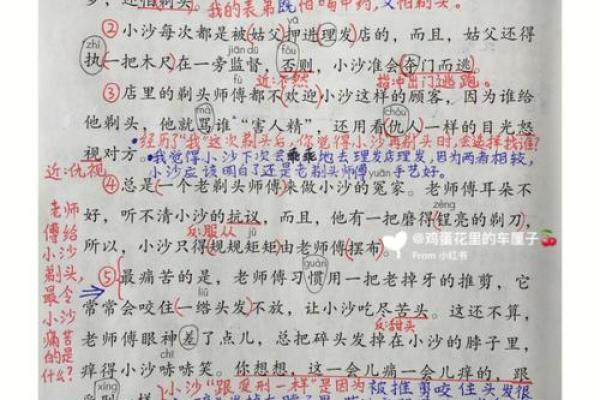 我的表弟既怕喝中药,又怕剃头。
yā
②小沙每次都是被姑父押进理发店的,而且,姑父还得
zhí jiān dū fǒu
执一把木尺在一旁监督,否则,小沙准会夺门而逃。
近:不然 指冲出门逃跑。
③店里的剃头师傅都不欢迎小沙这样的顾客,因为谁给
chóu
他剃头,他就骂谁“害人精”,还用看仇人一样的目光怒
经历了“我”这次剃头后,你觉得小沙再剃头时,会选择找谁?
视对方。
我觉得小沙下次会乖乖地去理发店理发,因为两者相较,
近:仇视
小沙应该明白了还是老剃头师傅手艺好。
yuān
④总是一个老剃头师傅来做小沙的冤家。老师傅耳朵不
zèng
好,听不清小沙的抗议,而且,他有一把磨得锃亮的剃刀,
反:服从 jǔ
所以,小沙只得规规矩矩由老师傅摆布。
@鸡蛋花里的车厘子🍒
From 小红书
老师傅给小沙剃头,最令小沙痛苦的是什么?
guàn
⑤最痛苦的是,老师傅习惯用一把老掉牙的推剪,它
常常会咬住一绺头发不放,让小沙吃尽苦头。这还不算,
反:甜头
老师傅眼神差了点儿,总把碎头发掉在小沙的脖子里,
chī
痒得小沙哧哧笑。你想想,这一会儿痛一会儿痒的,跟
xíng
小沙“跟受刑一样”是因为被推剪咬住头发很